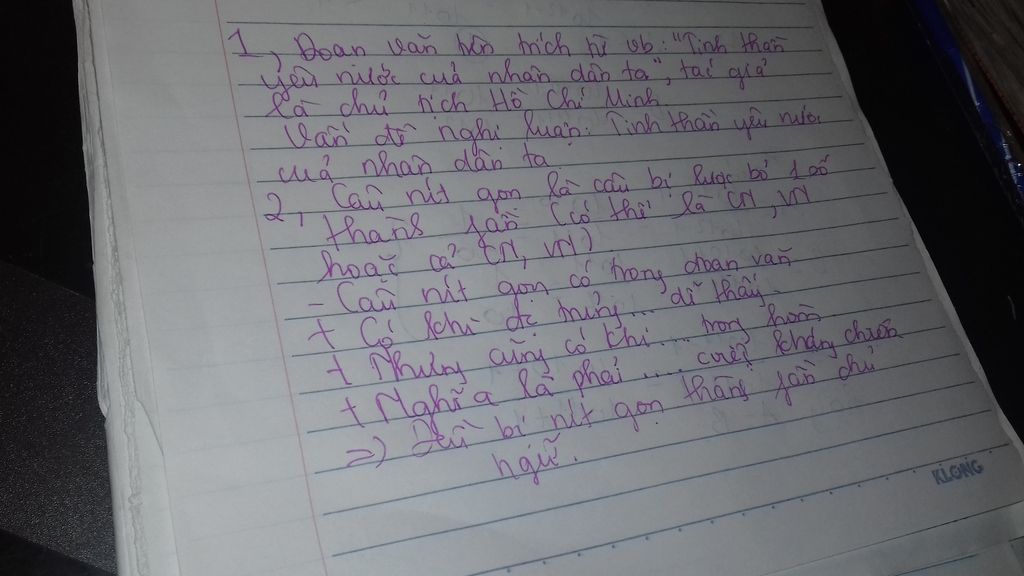 1, Đoạn văn trên trích từ vb: "Tinh thần
yêu nước của nhân dân ta", tác giả
là chủ tịch Hồ Chí Minh
Vấn đề nghị luận: Tinh thần yêu nước
của nhân dân ta
2, Câu rút gọn là câu bị lược bỏ 1 số
thành phần (có thể là CN, VN
hoặc cả CN, VN)
- Câu rút gọn có trong đoạn văn
+ Có khi đc trưng... dễ thấy
+ Nhưng cũng có khi.... trong hòm
+ Nghĩa là phải .... cuộc kháng chiến
=> Đều bị rút gọn thành phần chủ
ngữ.
KLONG